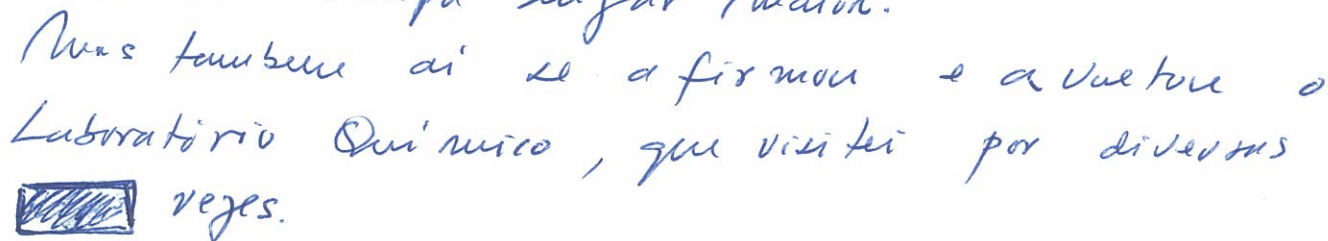 lugar maior.
Mas também aí se afirmou e avultou o
Laboratório Químico, que visitei por diversas
vezes.